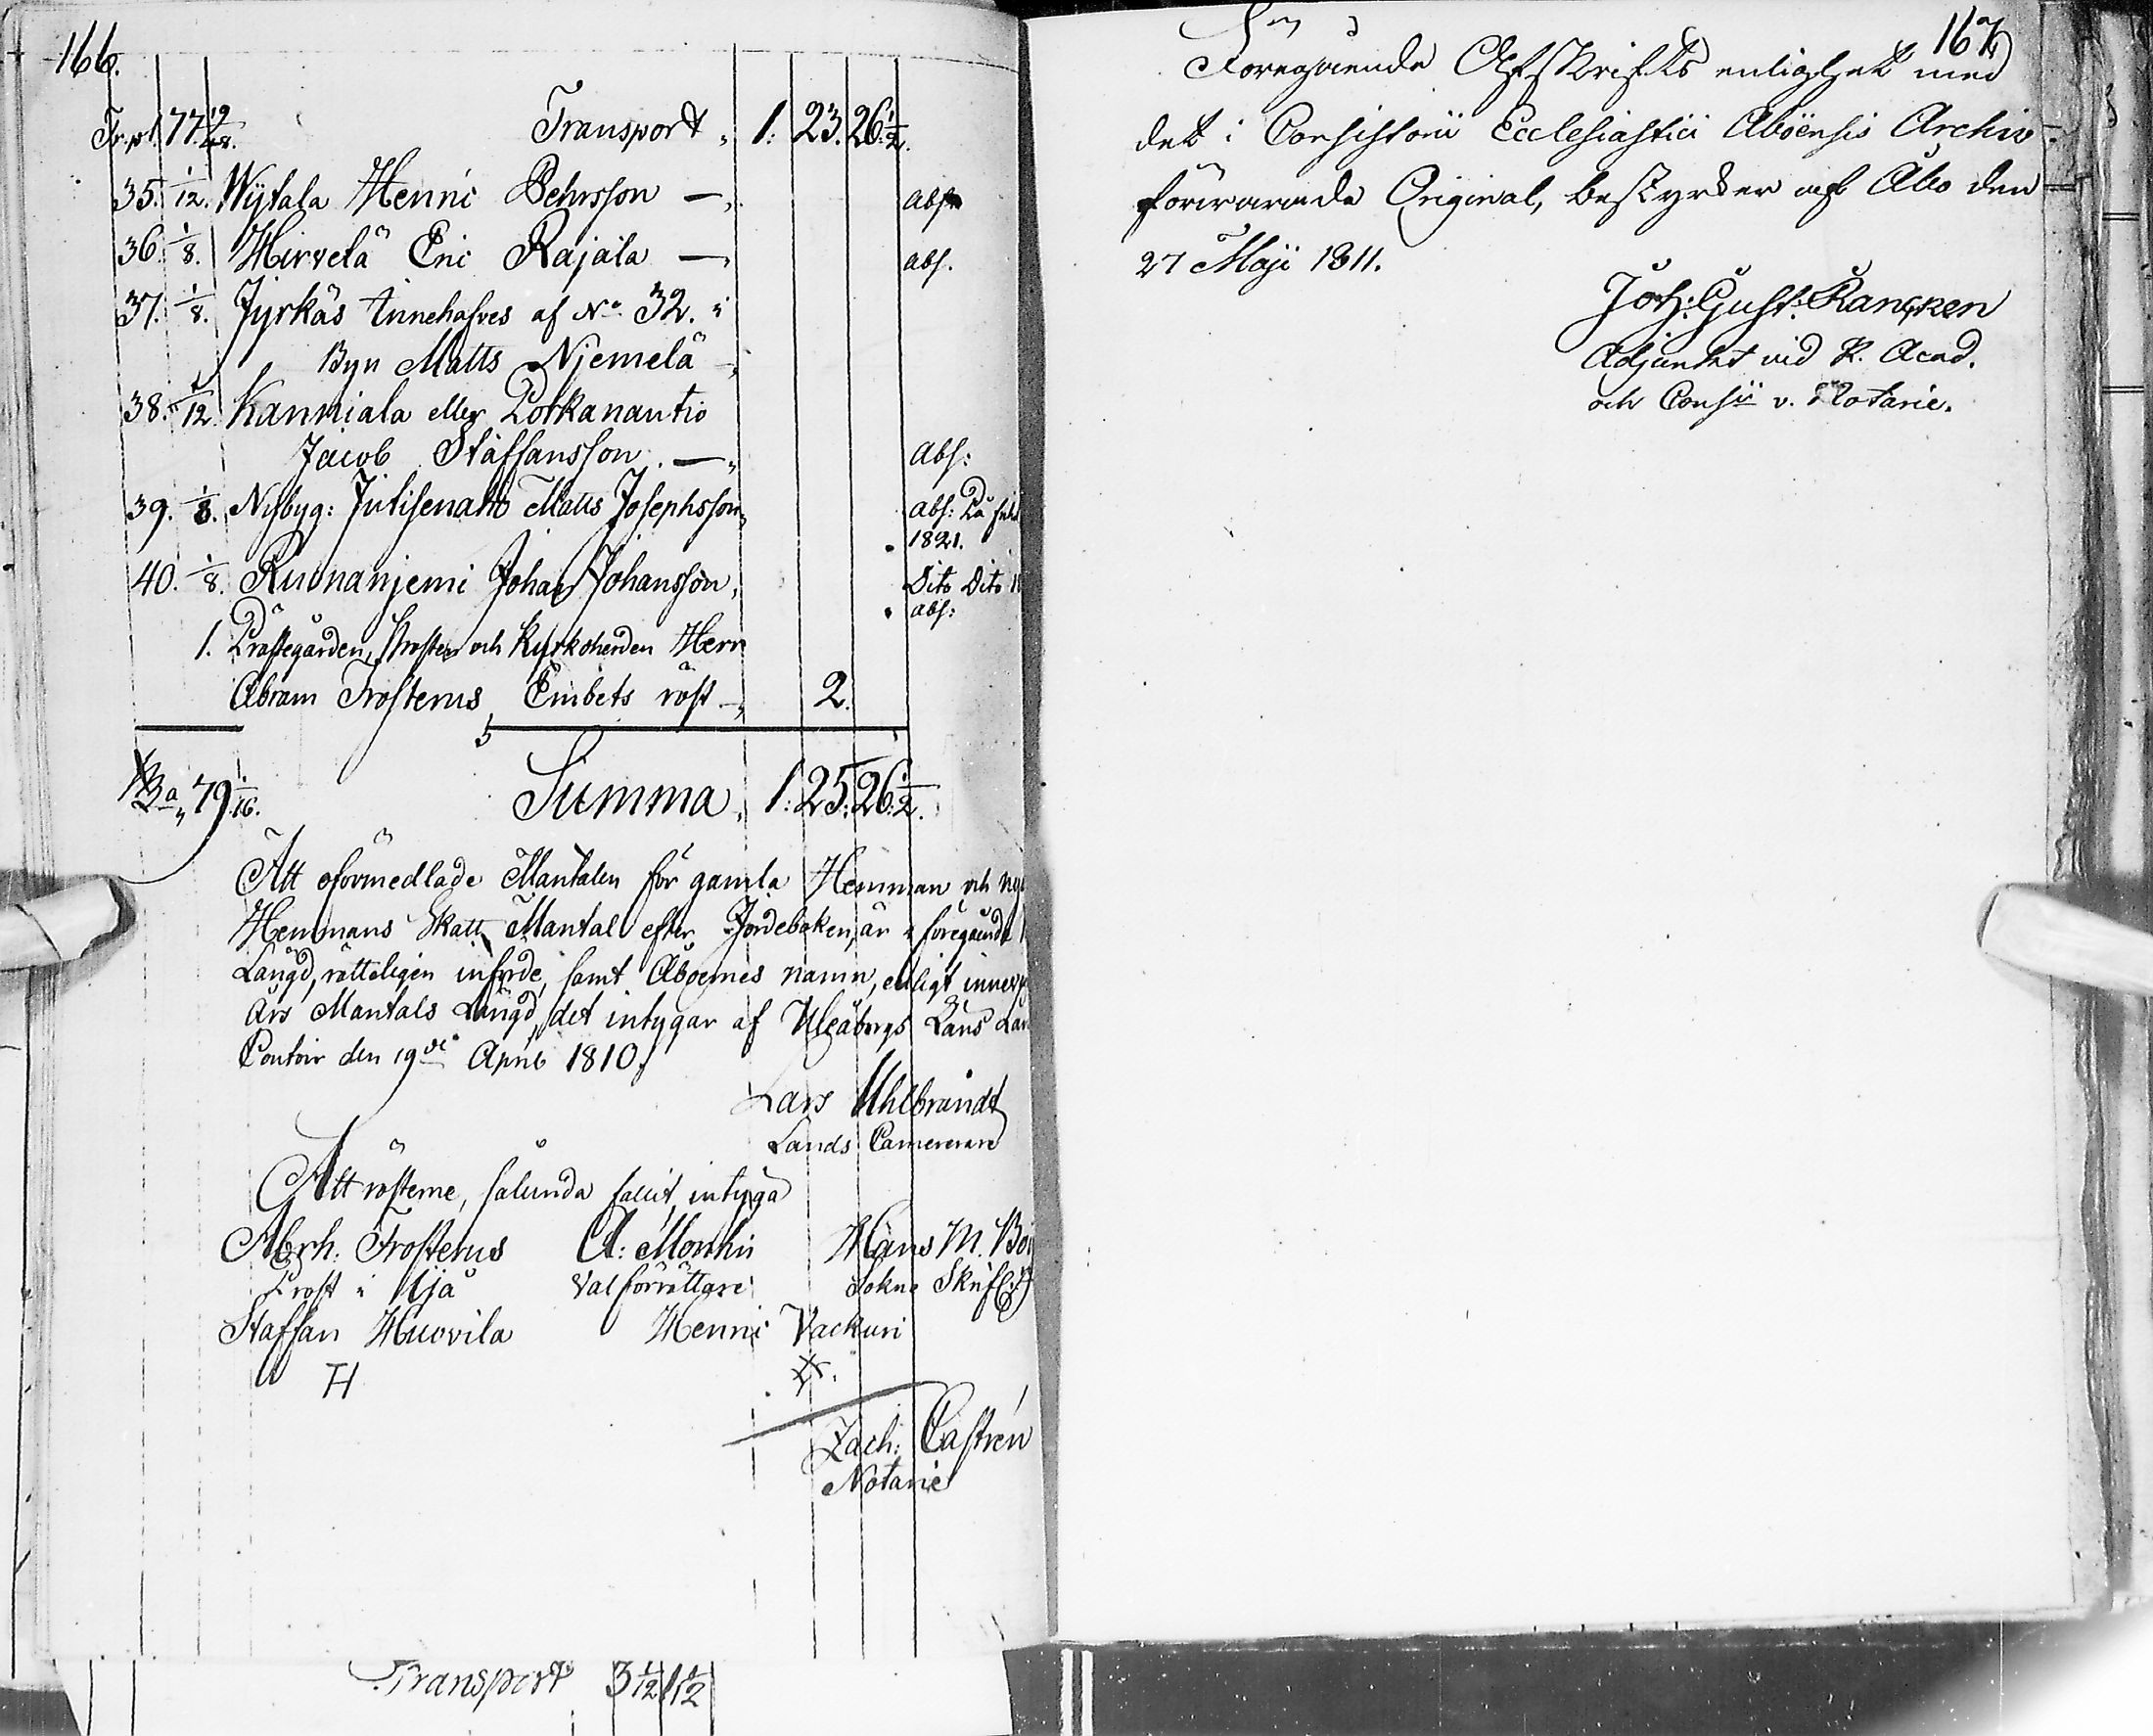 166.
Trp:t 77. 19/48. Transport „ 1: 23. 26 1/2.
35. 1/12. Wijtala Henric Pehrsson — „ abs:
36. 1/8. Hirvelä Eric Rajala — „ abs.
37. 1/8. Jyrkäs innehafves af No. 32. i
Byn Matts Njemelä — „
38. 1/12. Kanniala eller Porkanantio
Jacob Staffansson. — „ abs:
39. 1/8. Nybyg: Jutisenaho Matts Josephsson „ abs: Då
1821.
40. 1/8. Ruonanjemi Johan Johansson „ Dito Dito
abs:
1. Prästegården, Prosten och Kyrkoherden Herr
Abram Frosterus Embets röst — „ 2.
79 1/16. Summa „ 1: 25: 26 1/2.
Att oförmedlade Mantalen för gamla Hemman och
Hemmans Skatt Mantal efter Jordeboken, är i föregående
Längd, rätteligen införde, samt Åboernes namn, enligt
Års Mantals Längd, det intygar af Uleåborgs Läns
Contoir den 19de April 1810.
Lars Uhlbrandt
Lands Camererare
Att rösterne, sålunda fallit, intyga
Abrh. Frosterus A: Montin Hans M.
Prost i Ijå Valförrättare Sokne Skrif(:)
Staffan Huovila Henric Vackuri
H
Zach: Castrén
Notarie
Transport 3 1/12 1/12
167
Föregående Afskrifts enlighet med
det i Consistorii Ecclesiastici Aboënsis Archiv
förwarade Original, bestyrker af Åbo den
27 Maji 1811.
Joh: Gust: Rancken
Adjunkt vid K. Acad.
och Consii v. Notarie.